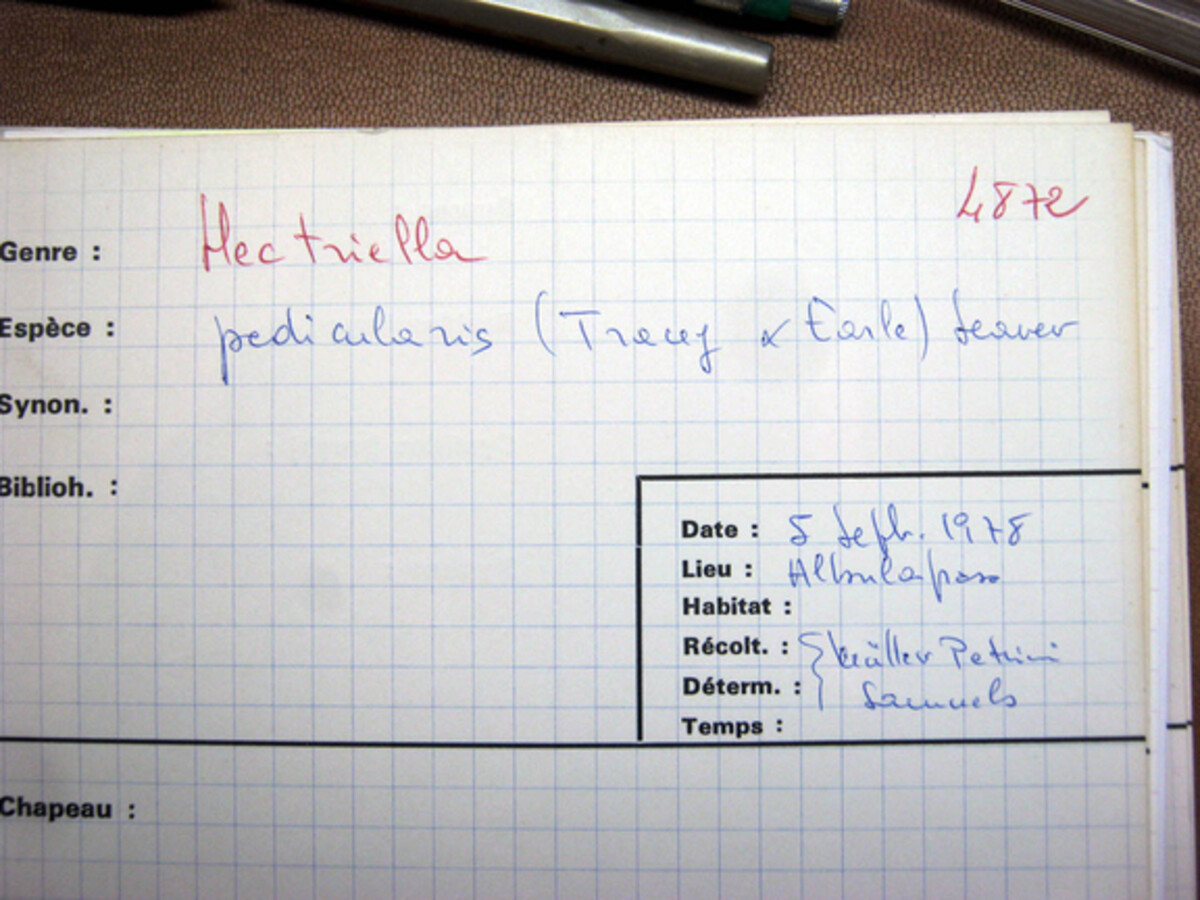 4872
Genre : Nectriella
Espèce : pedicularis (Tracy & Earle) Seaver
Synon. :
Biblioh. :
Date : 5 Sept. 1978
Lieu : Albulapass
Habitat :
Récolt. : { Müller Petrini
Déterm. : Samuels
Temps :
Chapeau :